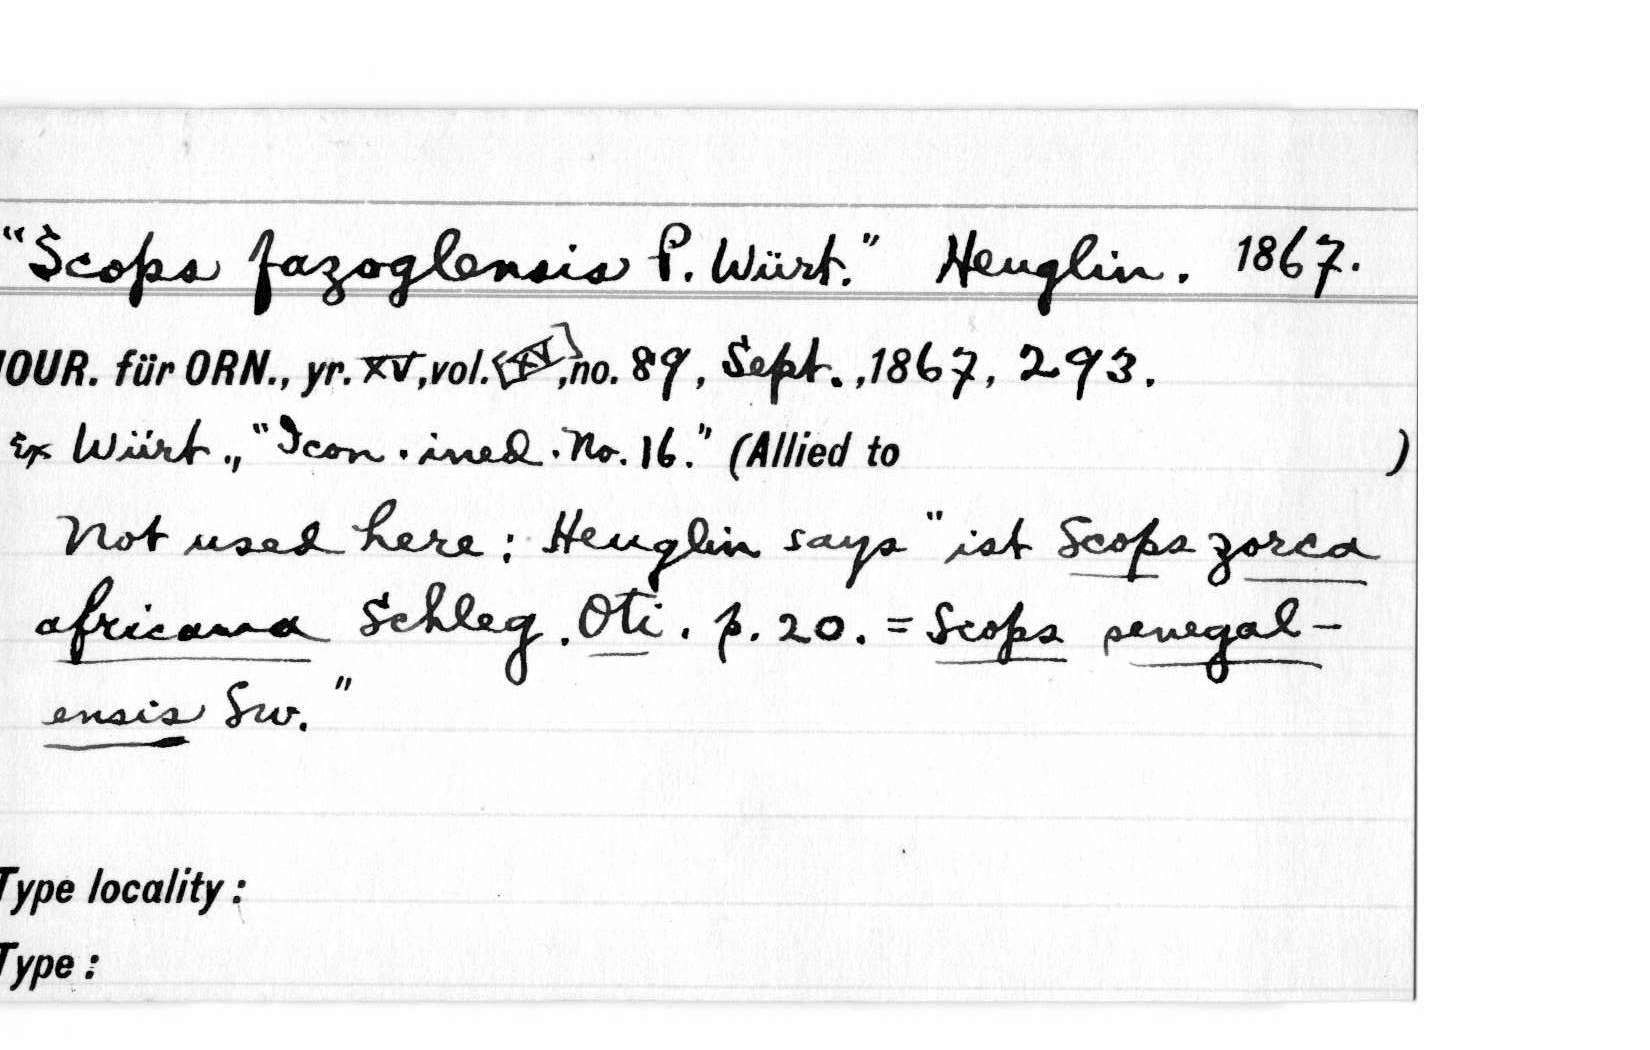 "Scops fazoglensis P. Würt." Heuglin. 1867.
JOUR. für ORN., yr. XV, vol. [XV], no. 89, Sept., 1867, 293.
Ex Würt., "Icon. ined. No. 16." (Allied to )
Not used here; Heuglin says "ist Scops zorca
africana Schleg. Oti. p. 20. = Scops senegal-
ensis Sw."
Type locality:
Type: